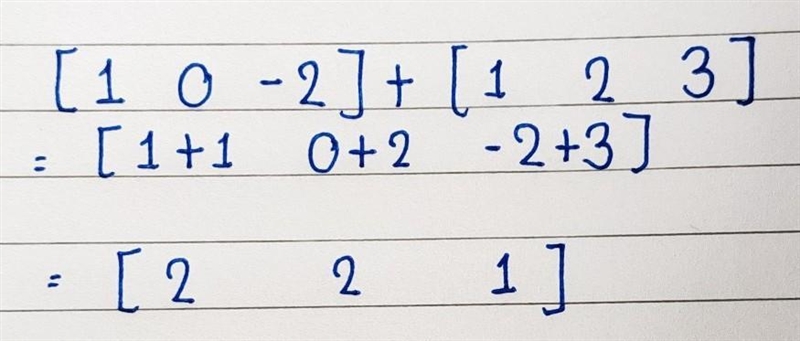 [1 0 -2] + [1 2 3]
= [1+1 0+2 -2+3]
= [2 2 1]